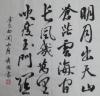 明月出天山
蒼茫雲海間
長風幾萬里
吹度玉門關